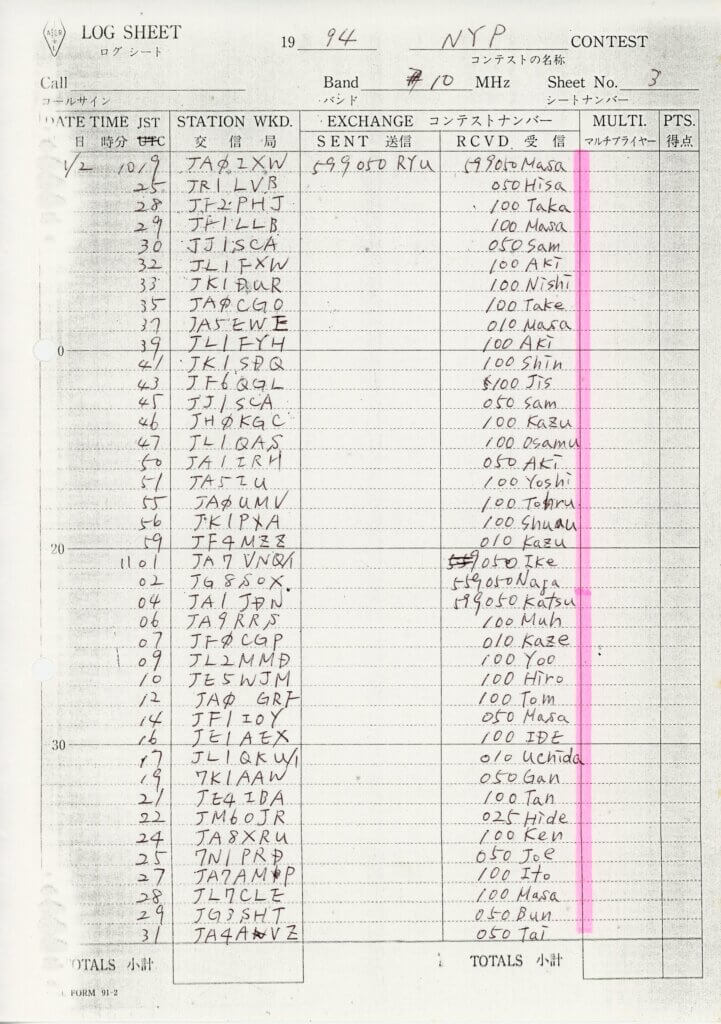 LOG SHEET
ログ シート
19 94 NYP CONTEST
コンテストの名称
Call Band 10 MHz Sheet No. 3
コールサイン バンド シートナンバー
DATE TIME JST STATION WKD. EXCHANGE コンテストナンバー MULTI. PTS.
日 時分 UTC 交信局 SENT 送信 RCVD. 受信 マルチプライヤー 得点
1/2 1019 JAØIXW 599050 RYU 599050 Masa
25 JR1LVB 050 Hisa
28 JF2PHJ 100 Taka
29 JF1LLB 100 Masa
30 JJ1SCA 050 Sam
32 JL1FXW 100 Aki
33 JK1DUR 100 Nishi
35 JAØCGO 100 Take
37 JA5EWE 010 Masa
39 JL1FYH 100 Aki
0
41 JK1SDQ 100 Shin
43 JF6QGL 100 Jis
45 JJ1SCA 050 Sam
46 JHØKGC 100 Kazu
47 JL1QAS 100 Osamu
50 JA1IRH 050 Aki
51 JA5IU 100 Yoshi
55 JAØUMV 100 Tohru
56 JK1PXA 100
59 JF4MZZ 010 Kazu
20
1101 JA7VNQ/1 050 Ike
02 JG8SOX 559050 Naga
04 JA1JDN 599050 Katsu
06 JA9RRS 100 Muh
07 JFØCGP 010 Kaze
09 JL2MMD 100 Yoo
10 JE5WJM 100 Hiro
12 JAØ GRF 100 Tom
14 JF1IOY 050 Masa
16 JE1AEX 100 IDE
30
17 JL1QKU/1 010 Uchida
19 7K1AAW 050 Gan
21 JE4IDA 100 Tan
22 JM6OJR 025 Hide
24 JA8XRU 100 Ken
25 7N1PRD 050 Joe
27 JA7AMP 100 Ito
28 JL7CLE 100 Masa
29 JG3SHT 050 Bun
31 JA4AVZ 050 Tai
TOTALS 小計 TOTALS 小計
FORM 91-2